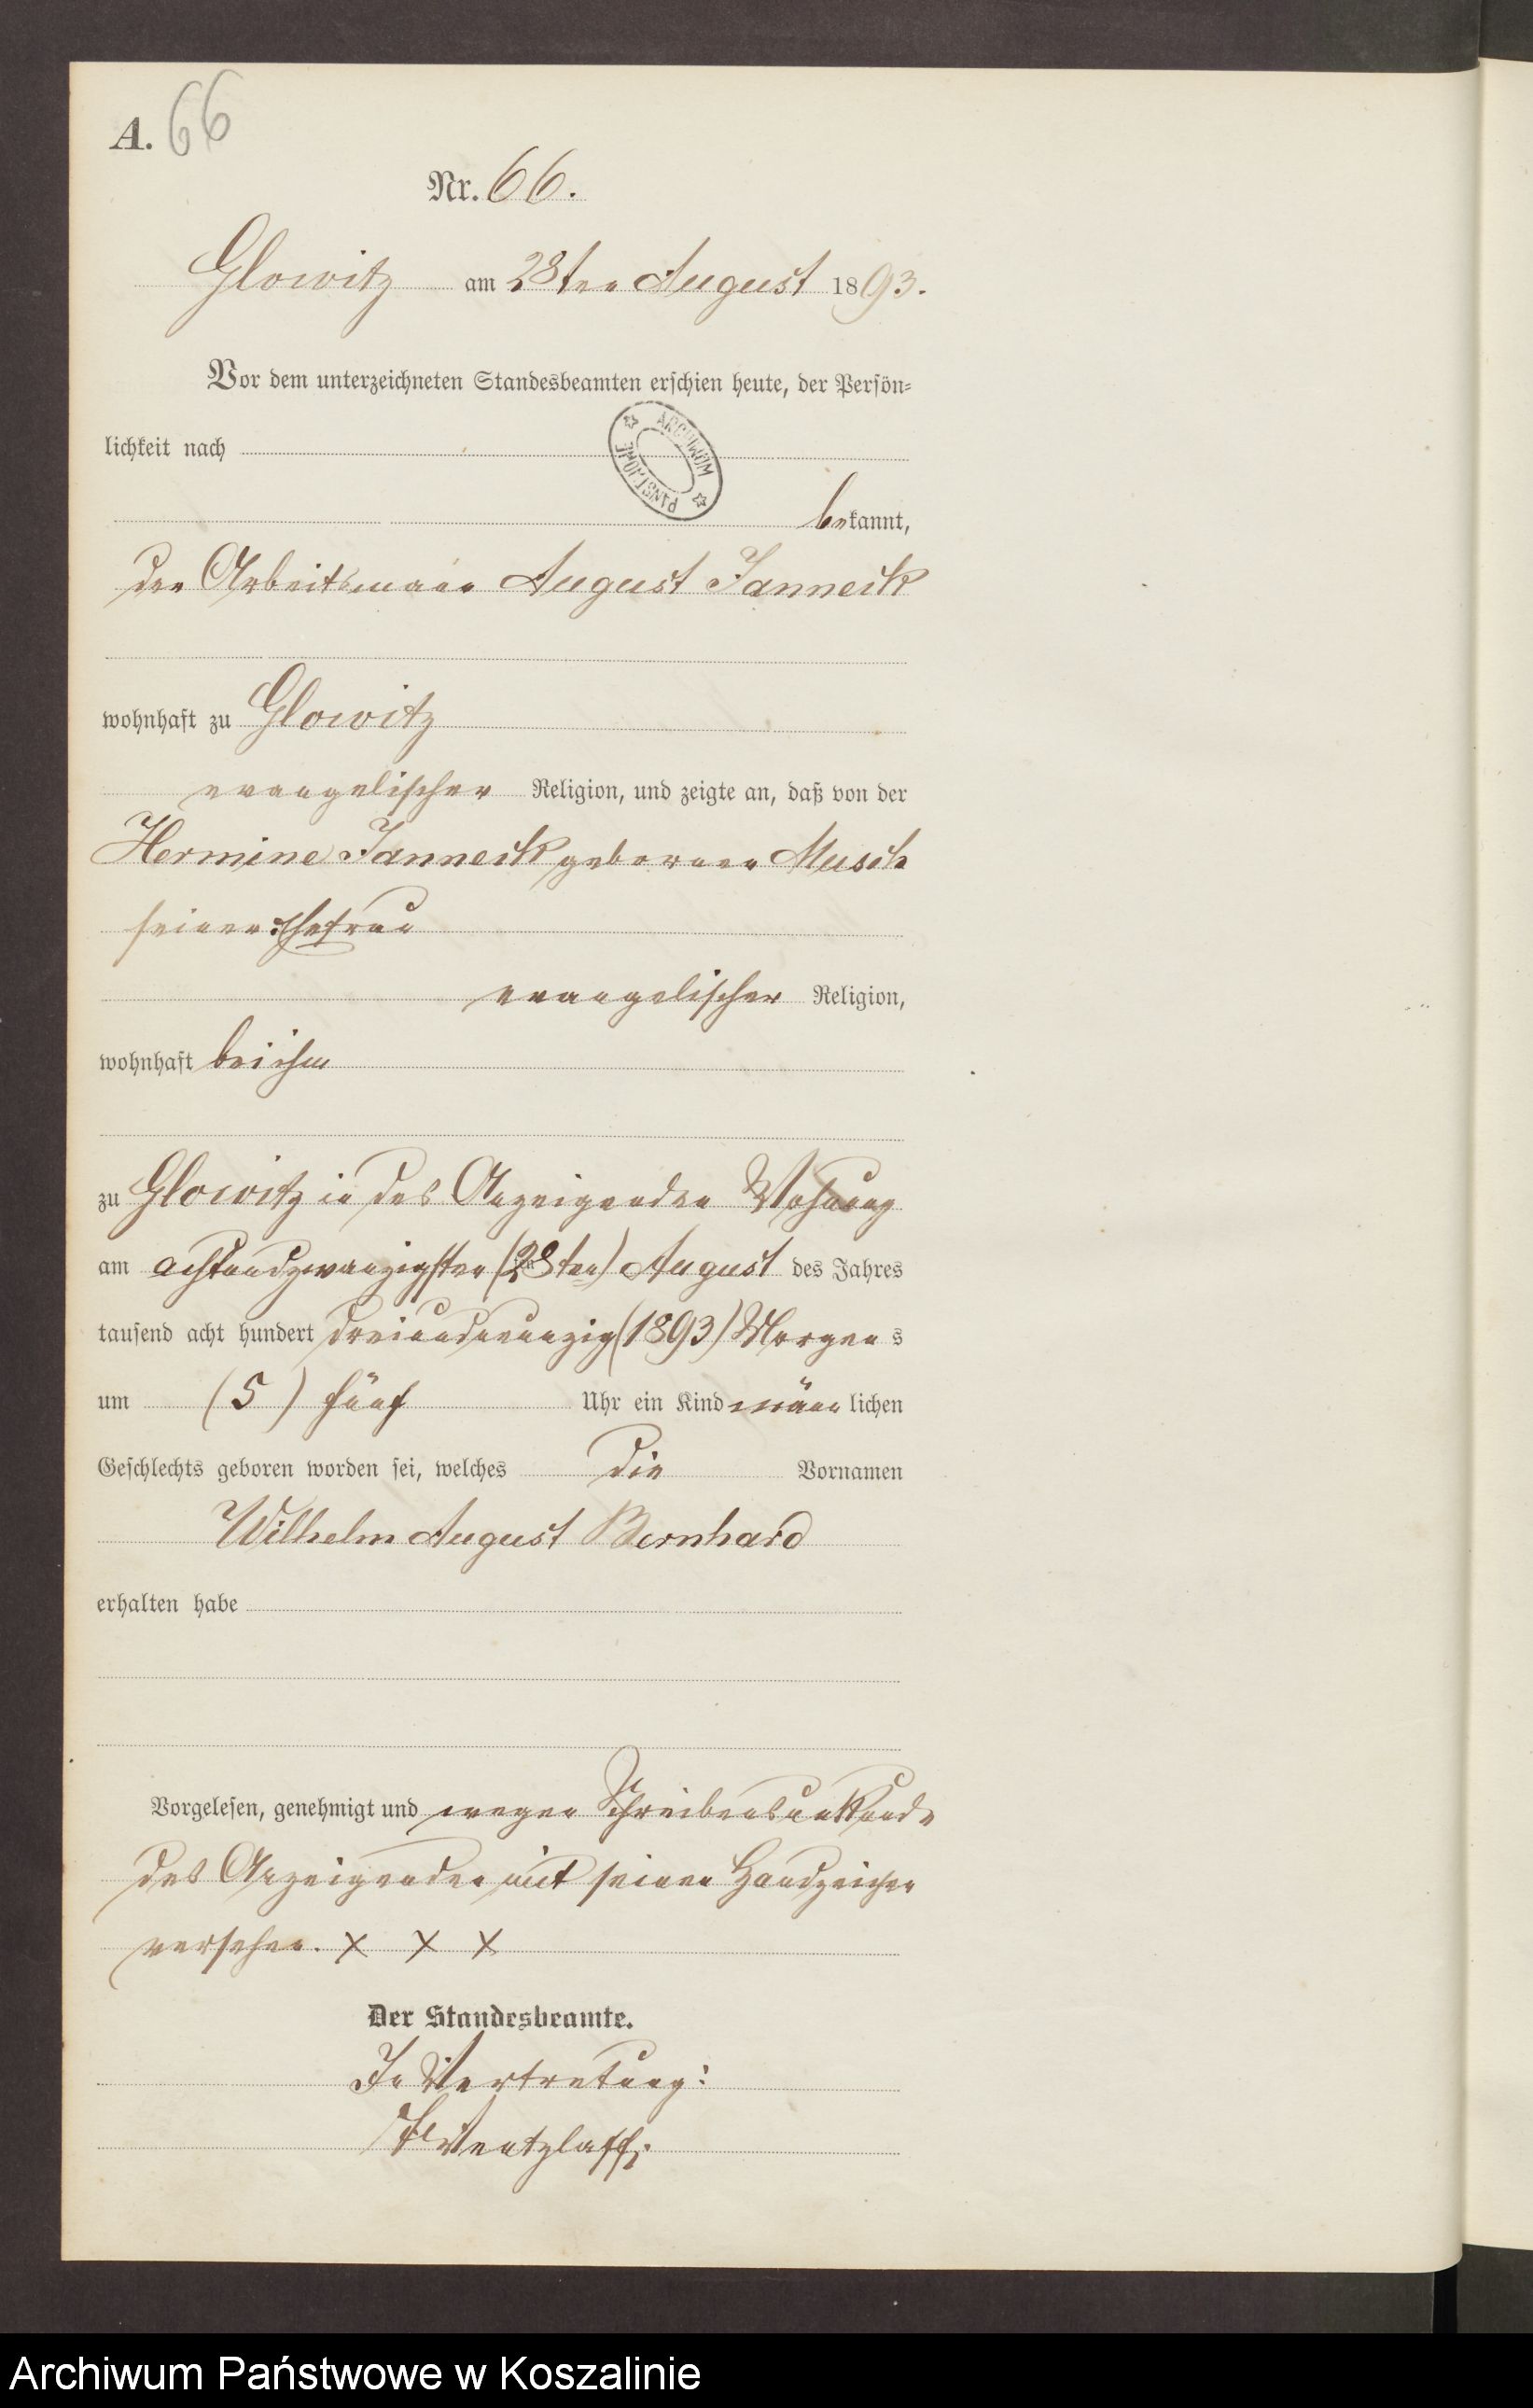 A. 66
Nr. 66.
Glowitz am 28ten August 1893.
Vor dem unterzeichneten Standesbeamten erschien heute, der Persön-
lichkeit nach
ARCHIWUM PAŃSTWOWE
bekannt,
der Arbeitsmann August Janneck
wohnhaft zu Glowitz
evangelischer Religion, und zeigte an, daß von der
Hermine Janneck geborenen Musch
seiner Ehefrau
evangelischer Religion,
wohnhaft bei ihm
zu Glowitz in des Anzeigenden Wohnung
am achtundzwanzigsten (28ten) August des Jahres
tausend acht hundert dreiundneunzig (1893) Morgens
um (5) fünf Uhr ein Kind männlichen
Geschlechts geboren worden sei, welches die Vornamen
Wilhelm August Bernhard
erhalten habe
Vorgelesen, genehmigt und wegen Schreibensunkunde
des Anzeigenden mit seinen Handzeichen
versehen. X X X
Der Standesbeamte.
In Vertretung:
Wentzlaff.
Archiwum Państwowe w Koszalinie